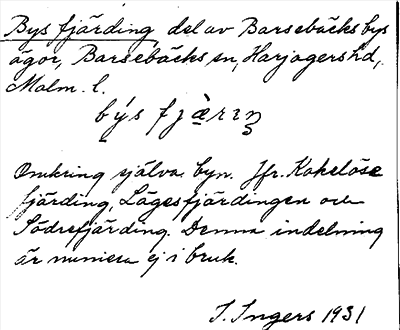 Bys fjärding, del av Barsebäcks bys
ägor, Barsebäcks sn, Harjagers hd,
Malm. l.
býs fjæ̀rɪŋ
Omkring själva byn. Jfr. Kakelöse
fjärding, Lägesfjärdingen och
Södrefjärding. Denna indelning
är numera ej i bruk.
I. Ingers 1931